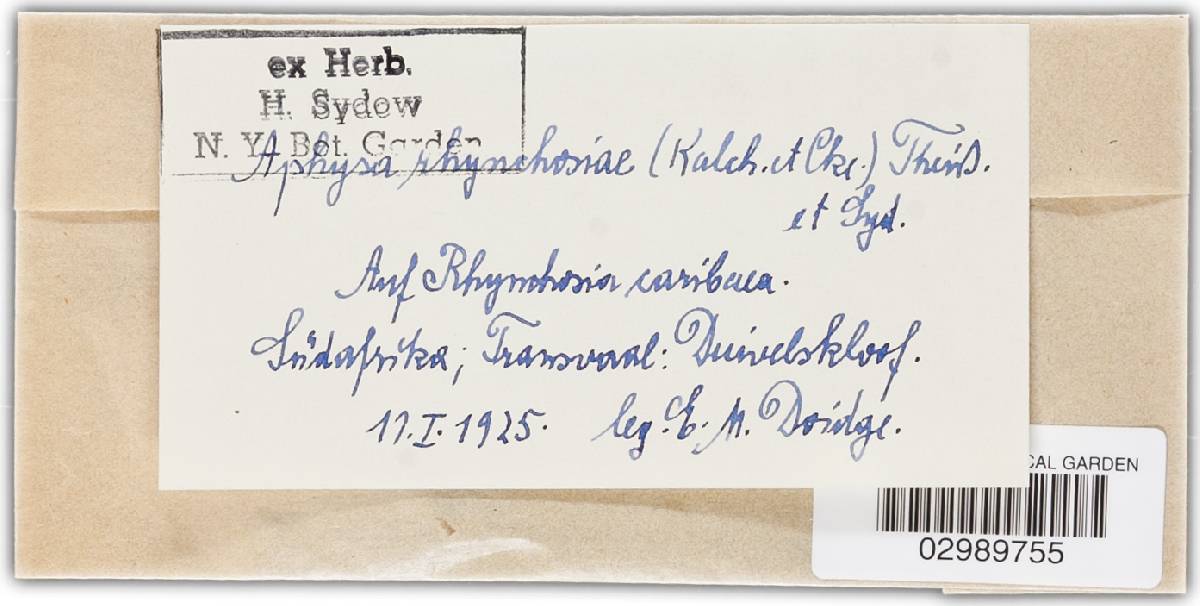 ex Herb.
H. Sydow
N. Y. Bot. Garden
Aphysa rhynchosiae (Kalch. et Cke.) Theiß.
et Syd.
Auf Rhynchosia caribaea.
Südafrika; Transvaal: Duivelskloof.
17.I.1925. leg. E. M. Doidge.
CAL GARDEN
02989755